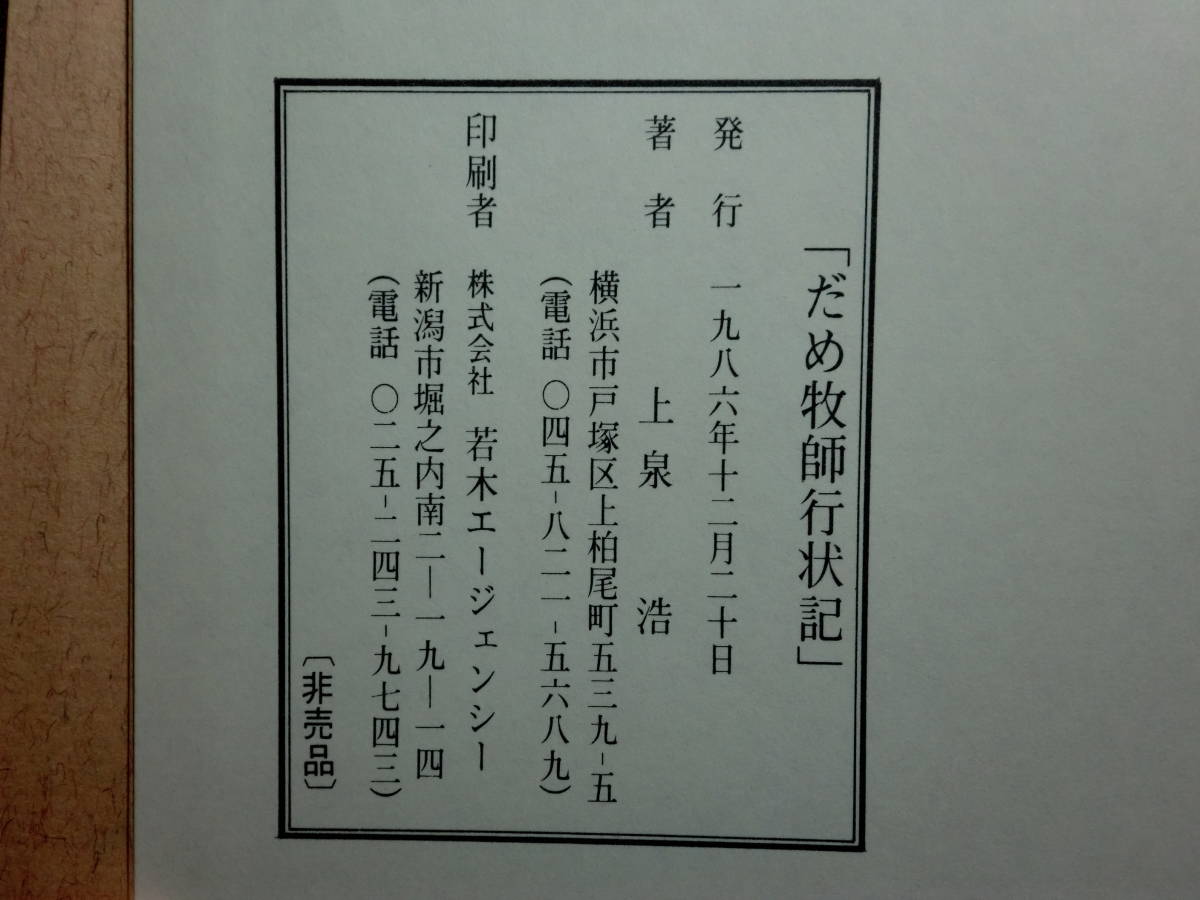 「だめ牧師行状記」
発行 一九八六年十二月二十日
著者 上泉 浩
横浜市戸塚区上柏尾町五三九-五
(電話 〇四五-八二一-五六八九)
印刷者 株式会社 若木エージェンシー
新潟市堀之内南二―一九―一四
(電話 〇二五-二四三-九七四三)
〔非売品〕